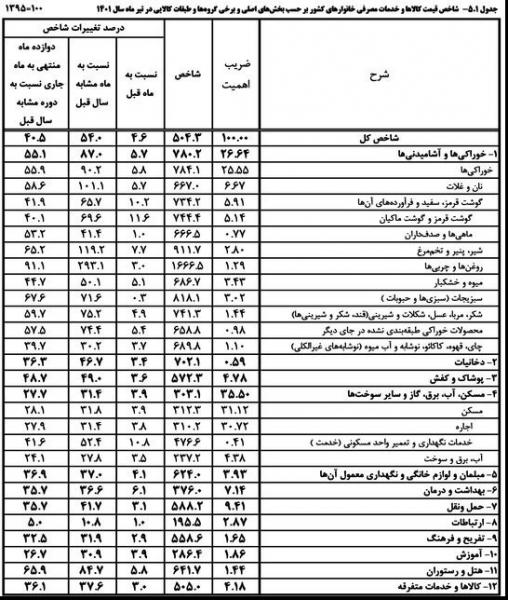 جدول ۵.۱- شاخص قیمت کالاها و خدمات مصرفی خانوارهای کشور بر حسب بخش‌های اصلی و برخی گروه‌ها و طبقات کالایی در تیر ماه سال ۱۴۰۱ ۱۰۰=۱۳۹۵
شرح ضریب اهمیت شاخص درصد تغییرات شاخص
نسبت به ماه قبل نسبت به ماه مشابه سال قبل دوازده ماه منتهی به ماه جاری نسبت به دوره مشابه سال قبل
شاخص کل ۱۰۰.۰۰ ۵۰۴.۳ ۴.۶ ۵۴.۰ ۴۰.۵
۱- خوراکی‌ها و آشامیدنی‌ها ۲۶.۶۴ ۷۸۰.۲ ۵.۷ ۸۷.۰ ۵۵.۱
خوراکی‌ها ۲۵.۵۵ ۷۸۴.۱ ۵.۸ ۹۰.۲ ۵۵.۹
نان و غلات ۶.۶۷ ۶۶۷.۰ ۵.۷ ۱۰۱.۱ ۵۸.۶
گوشت قرمز، سفید و فرآورده‌های آن‌ها ۵.۹۱ ۷۳۴.۲ ۱۰.۲ ۶۵.۷ ۴۱.۹
گوشت قرمز و گوشت ماکیان ۵.۱۴ ۷۴۴.۴ ۱۱.۶ ۶۹.۶ ۴۰.۱
ماهی‌ها و صدف‌داران ۰.۷۷ ۶۶۶.۵ ۱.۰ ۴۱.۴ ۵۳.۲
شیر، پنیر و تخم‌مرغ ۲.۸۰ ۹۱۱.۷ ۷.۷ ۱۱۹.۲ ۶۵.۲
روغن‌ها و چربی‌ها ۱.۲۹ ۱۶۶۶.۵ ۳.۰ ۲۹۳.۱ ۹۱.۱
میوه و خشکبار ۳.۴۳ ۶۸۶.۷ ۵.۱ ۵۰.۱ ۴۴.۷
سبزیجات (سبزی‌ها و حبوبات) ۳.۰۲ ۸۱۸.۱ ۰.۳ ۷۱.۶ ۶۷.۶
شکر، مربا، عسل، شکلات و شیرینی(قند، شکر و شیرینی‌ها) ۱.۴۴ ۷۴۱.۳ ۴.۹ ۷۵.۲ ۵۹.۷
محصولات خوراکی طبقه‌بندی نشده در جای دیگر ۰.۹۸ ۶۵۸.۸ ۵.۴ ۷۴.۴ ۵۷.۵
چای، قهوه، کاکائو، نوشابه و آب میوه (نوشابه‌های غیرالکلی) ۱.۱۰ ۶۸۹.۸ ۳.۷ ۳۰.۲ ۳۹.۷
۲- دخانیات ۰.۵۹ ۷۰۲.۱ ۳.۴ ۴۶.۷ ۳۶.۳
۳- پوشاک و کفش ۴.۷۸ ۵۷۲.۳ ۳.۶ ۴۹.۰ ۴۸.۷
۴- مسکن، آب، برق، گاز و سایر سوخت‌ها ۳۵.۵۰ ۳۰۳.۱ ۳.۹ ۳۱.۴ ۲۷.۷
مسکن ۳۱.۱۲ ۳۱۲.۳ ۳.۹ ۳۱.۸ ۲۸.۱
اجاره ۳۰.۷۲ ۳۱۰.۲ ۳.۸ ۳۱.۴ ۲۷.۹
خدمات نگهداری و تعمیر واحد مسکونی (خدمت) ۰.۴۱ ۴۷۶.۶ ۱۰.۸ ۵۲.۴ ۴۱.۶
آب، برق و سوخت ۴.۳۸ ۲۳۷.۲ ۳.۵ ۲۷.۸ ۲۴.۱
۵- مبلمان و لوازم خانگی و نگهداری معمول آن‌ها ۳.۹۳ ۶۲۴.۰ ۴.۱ ۳۷.۰ ۳۶.۹
۶- بهداشت و درمان ۷.۱۴ ۳۷۶.۰ ۶.۱ ۳۶.۶ ۳۵.۷
۷- حمل ونقل ۹.۴۱ ۵۸۸.۲ ۳.۱ ۴۱.۷ ۳۵.۷
۸- ارتباطات ۲.۸۷ ۱۹۵.۵ ۱.۰ ۱۰.۸ ۵.۰
۹- تفریح و فرهنگ ۱.۶۵ ۵۵۸.۶ ۲.۹ ۳۱.۹ ۳۲.۵
۱۰- آموزش ۱.۸۶ ۲۸۶.۴ ۳.۹ ۳۰.۹ ۲۶.۷
۱۱- هتل و رستوران ۱.۴۴ ۶۴۱.۷ ۵.۸ ۸۴.۷ ۶۵.۹
۱۲- کالاها و خدمات متفرقه ۴.۱۸ ۵۰۵.۰ ۳.۰ ۳۷.۶ ۳۶.۱